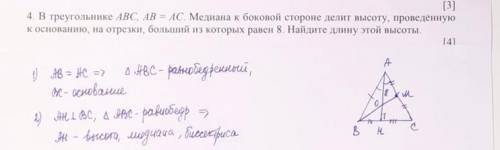 [3]
4. В треугольнике ABC, AB = AC. Медиана к боковой стороне делит высоту, проведённую
к основанию, на отрезки, больший из которых равен 8. Найдите длину этой высоты.
[4]
1) AB = AC => △ ABC - равнобедренный,
BC - основание
2) AH ⊥ BC, △ ABC - равнобедр =>
AH - высота, медиана, биссектриса
A
8
O
M
B
H
C